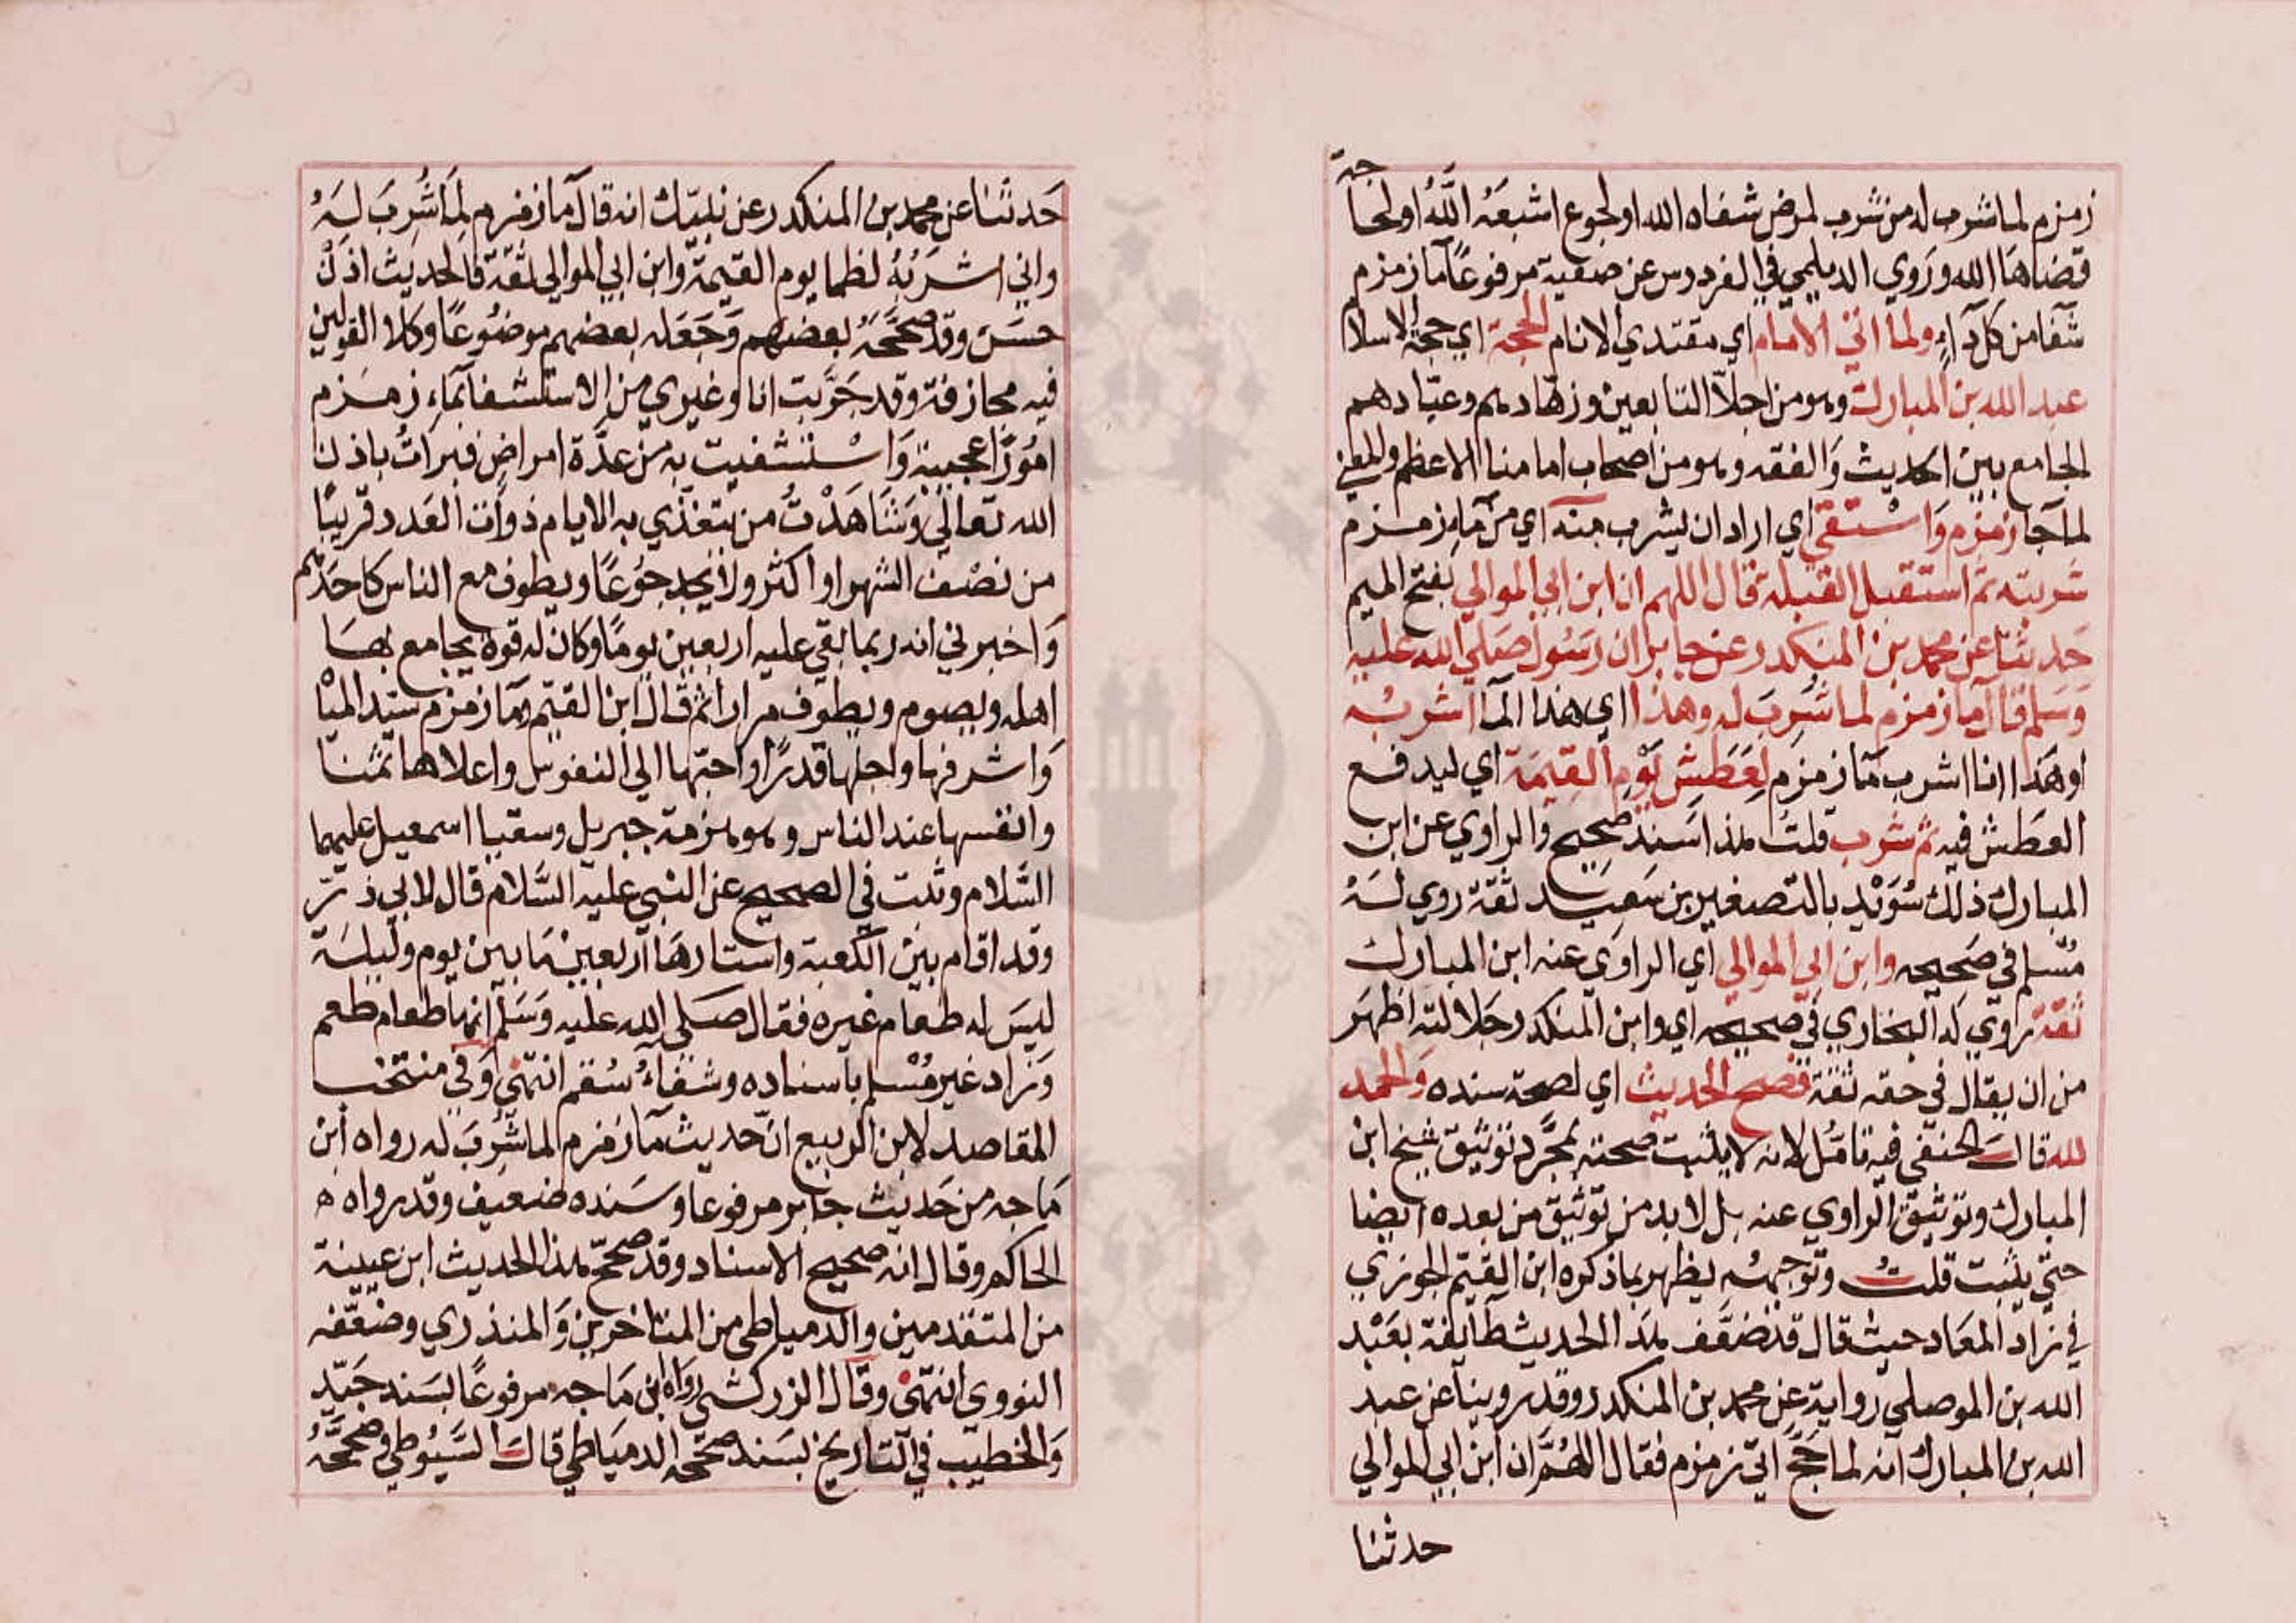 زمزم لما شرب له من شرب لمرض شفاه الله او لجوع اشبعه الله او لحاجة
قضاها الله وروي الديلمي في الفردوس عن صفية مرفوعا ماء زمزم
شفا من كل داء ولما اتي الامام اي مقتدي الانام الحجة اي حجة الاسلا
عبد الله بن المبارك وهو من اجلا التابعين وزهادهم وعبادهم
الجامع بين الحديث والفقه وهو من اصحاب امامنا الاعظم والمعني
لما جا زمزم واستقي اي اراد ان يشرب منه اي من ماء زمزم
شربته ثم استقبل القبلة قال اللهم ان ابن ابي الموالي بفتح الميم
حدثنا عن محمد بن المنكدر عن جابر ان رسول صلي الله عليه
وسلم قال ماء زمزم لما شرب له وهذا اي هذا الما اشربه
او هذا انا اشرب ما زمزم لعطش يوم القيمة اي ليدفع
العطش فيه ثم شرب قلت هذا سند صحيح والراوي عن ابن
المبارك ذلك سويد بالتصغير بن سعيد ثقة روي له
مسلم في صحيحه وابن ابي الموالي اي الراوي عنه ابن المبارك
ثقة روي له البخاري في صحيحه اي وابن المنكدر جلالته اظهر
من ان يقال في حقه ثقة فصح الحديث اي لصحة سنده والحمد
لله قال الحنفي فيه تامل لانه لا يثبت صحته بمجرد توثيق شيخ ابن
المبارك وتوثيق الراوي عنه بل لا بد من توثيق من بعده ايضا
حتي يثبت قلت وتوجيهه يظهر بما ذكره ابن القيم الجوزي
في زاد المعاد حيث قال قد ضعف هذا الحديث طايفة بعبد
الله بن الموصلي رواية عن محمد بن المنكدر وقد روينا عن عبد
الله بن المبارك انه لما حج اتي زمزم فقال اللهم ان ابن ابي الموالي
حدثنا
حدثنا عن محمد بن المنكدر عن نبيك انه قال ماء زمزم لما شرب له
واني اشربه لظما يوم القيمة وابن ابي الموالي ثقة فالحديث اذن
حسن وقد صححه بعضهم وجعله بعضهم موضوعا وكلا القولين
فيه مجازفة وقد جربت انا وغيري من الاستشفا بماء زمزم
امورا عجيبة واستشفيت به من عدة امراض فبرات باذن
الله تعالي وشاهدت من يتغذي به الايام ذوات العدد قريبا
من نصف الشهر او اكثر ولا يجد جوعا ويطوف مع الناس كاحدهم
واخبرني انه ربما بقي عليه اربعين يوما وكان له قوة يجامع بها
اهله ويصوم ويطوف مرارا ثم قال ابن القيم وماء زمزم سيد الميا
واشرفها واجلها قدرا واحبها الي النفوس واعلاها ثمنا
وانفسها عند الناس وهو هزمة جبريل وسقيا اسمعيل عليهما
السلام وثبت في الصحيح عن النبي عليه السلام قال لابي ذر
وقد اقام بين الكعبة واستارها اربعين ما بين يوم وليلة
ليس له طعام غيره فقال صلي الله عليه وسلم انها طعام طعم
وزاد غير مسلم باسناده وشفاء سقم انتهي وفي منتخب
المقاصد لابن الربيع ان حديث ماء زمزم لما شرب له رواه ابن
ماجه من حديث جابر مرفوعا وسنده ضعيف وقد رواه ه
الحاكم وقال انه صحيح الاسناد وقد صحح هذا الحديث ابن عيينة
من المتقدمين والدمياطي من المتاخرين والمنذري وضعفه
النووي انتهي وقال الزركشي رواه ابن ماجه مرفوعا بسند جيد
والخطيب في التاريخ بسند صححه الدمياطي قال السيوطي وصححه